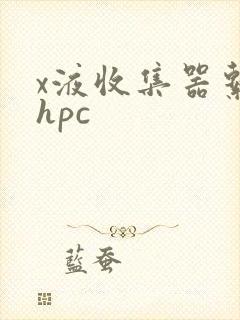 x液收集器
hpc
藍蚕